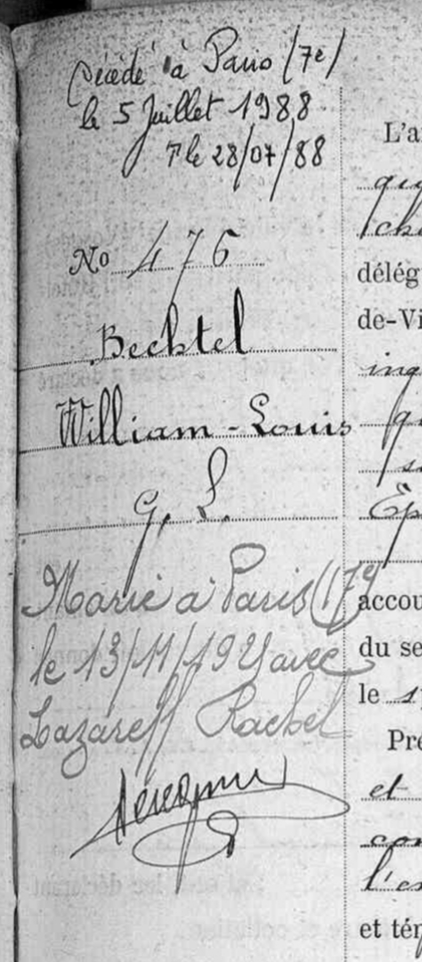 Décédé à Paris (7e)
le 5 Juillet 1988
le 28/07/88
No 476
Bechtel
William-Louis
G. L.
Marié à Paris (17e)
le 13/11/1924 avec
Lazareff Rachel
L'a
délég
de-Vi
accou
du se
le
Pré
et
con
l'ex
et tém